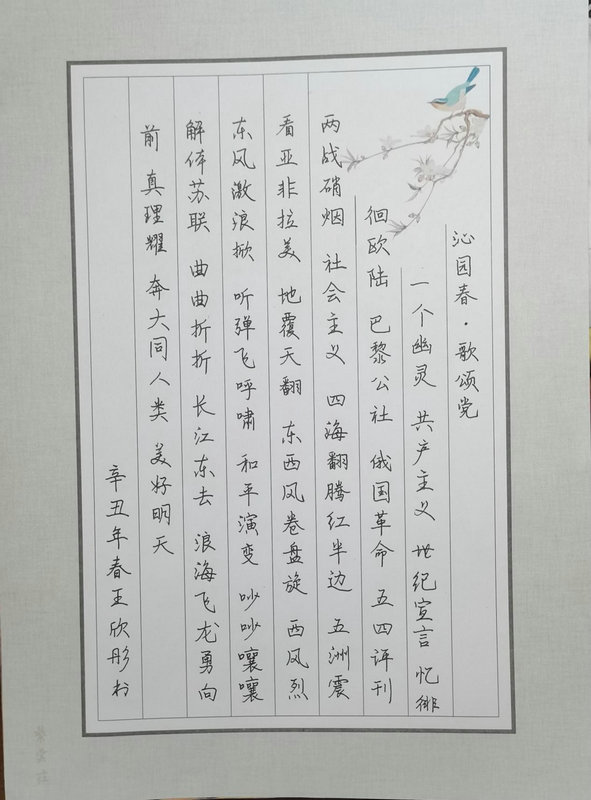 沁园春·歌颂党
一个幽灵 共产主义 世纪宣言 忆徘
徊欧陆 巴黎公社 俄国革命 五四评刊
两战硝烟 社会主义 四海翻腾红半边 五洲震
看亚非拉美 地覆天翻 东西风卷盘旋 西风烈
东风激浪掀 听弹飞呼啸 和平演变 吵吵嚷嚷
解体苏联 曲曲折折 长江东去 浪海飞龙勇向
前 真理耀 奔大同人类 美好明天
辛丑年春王欣彤书